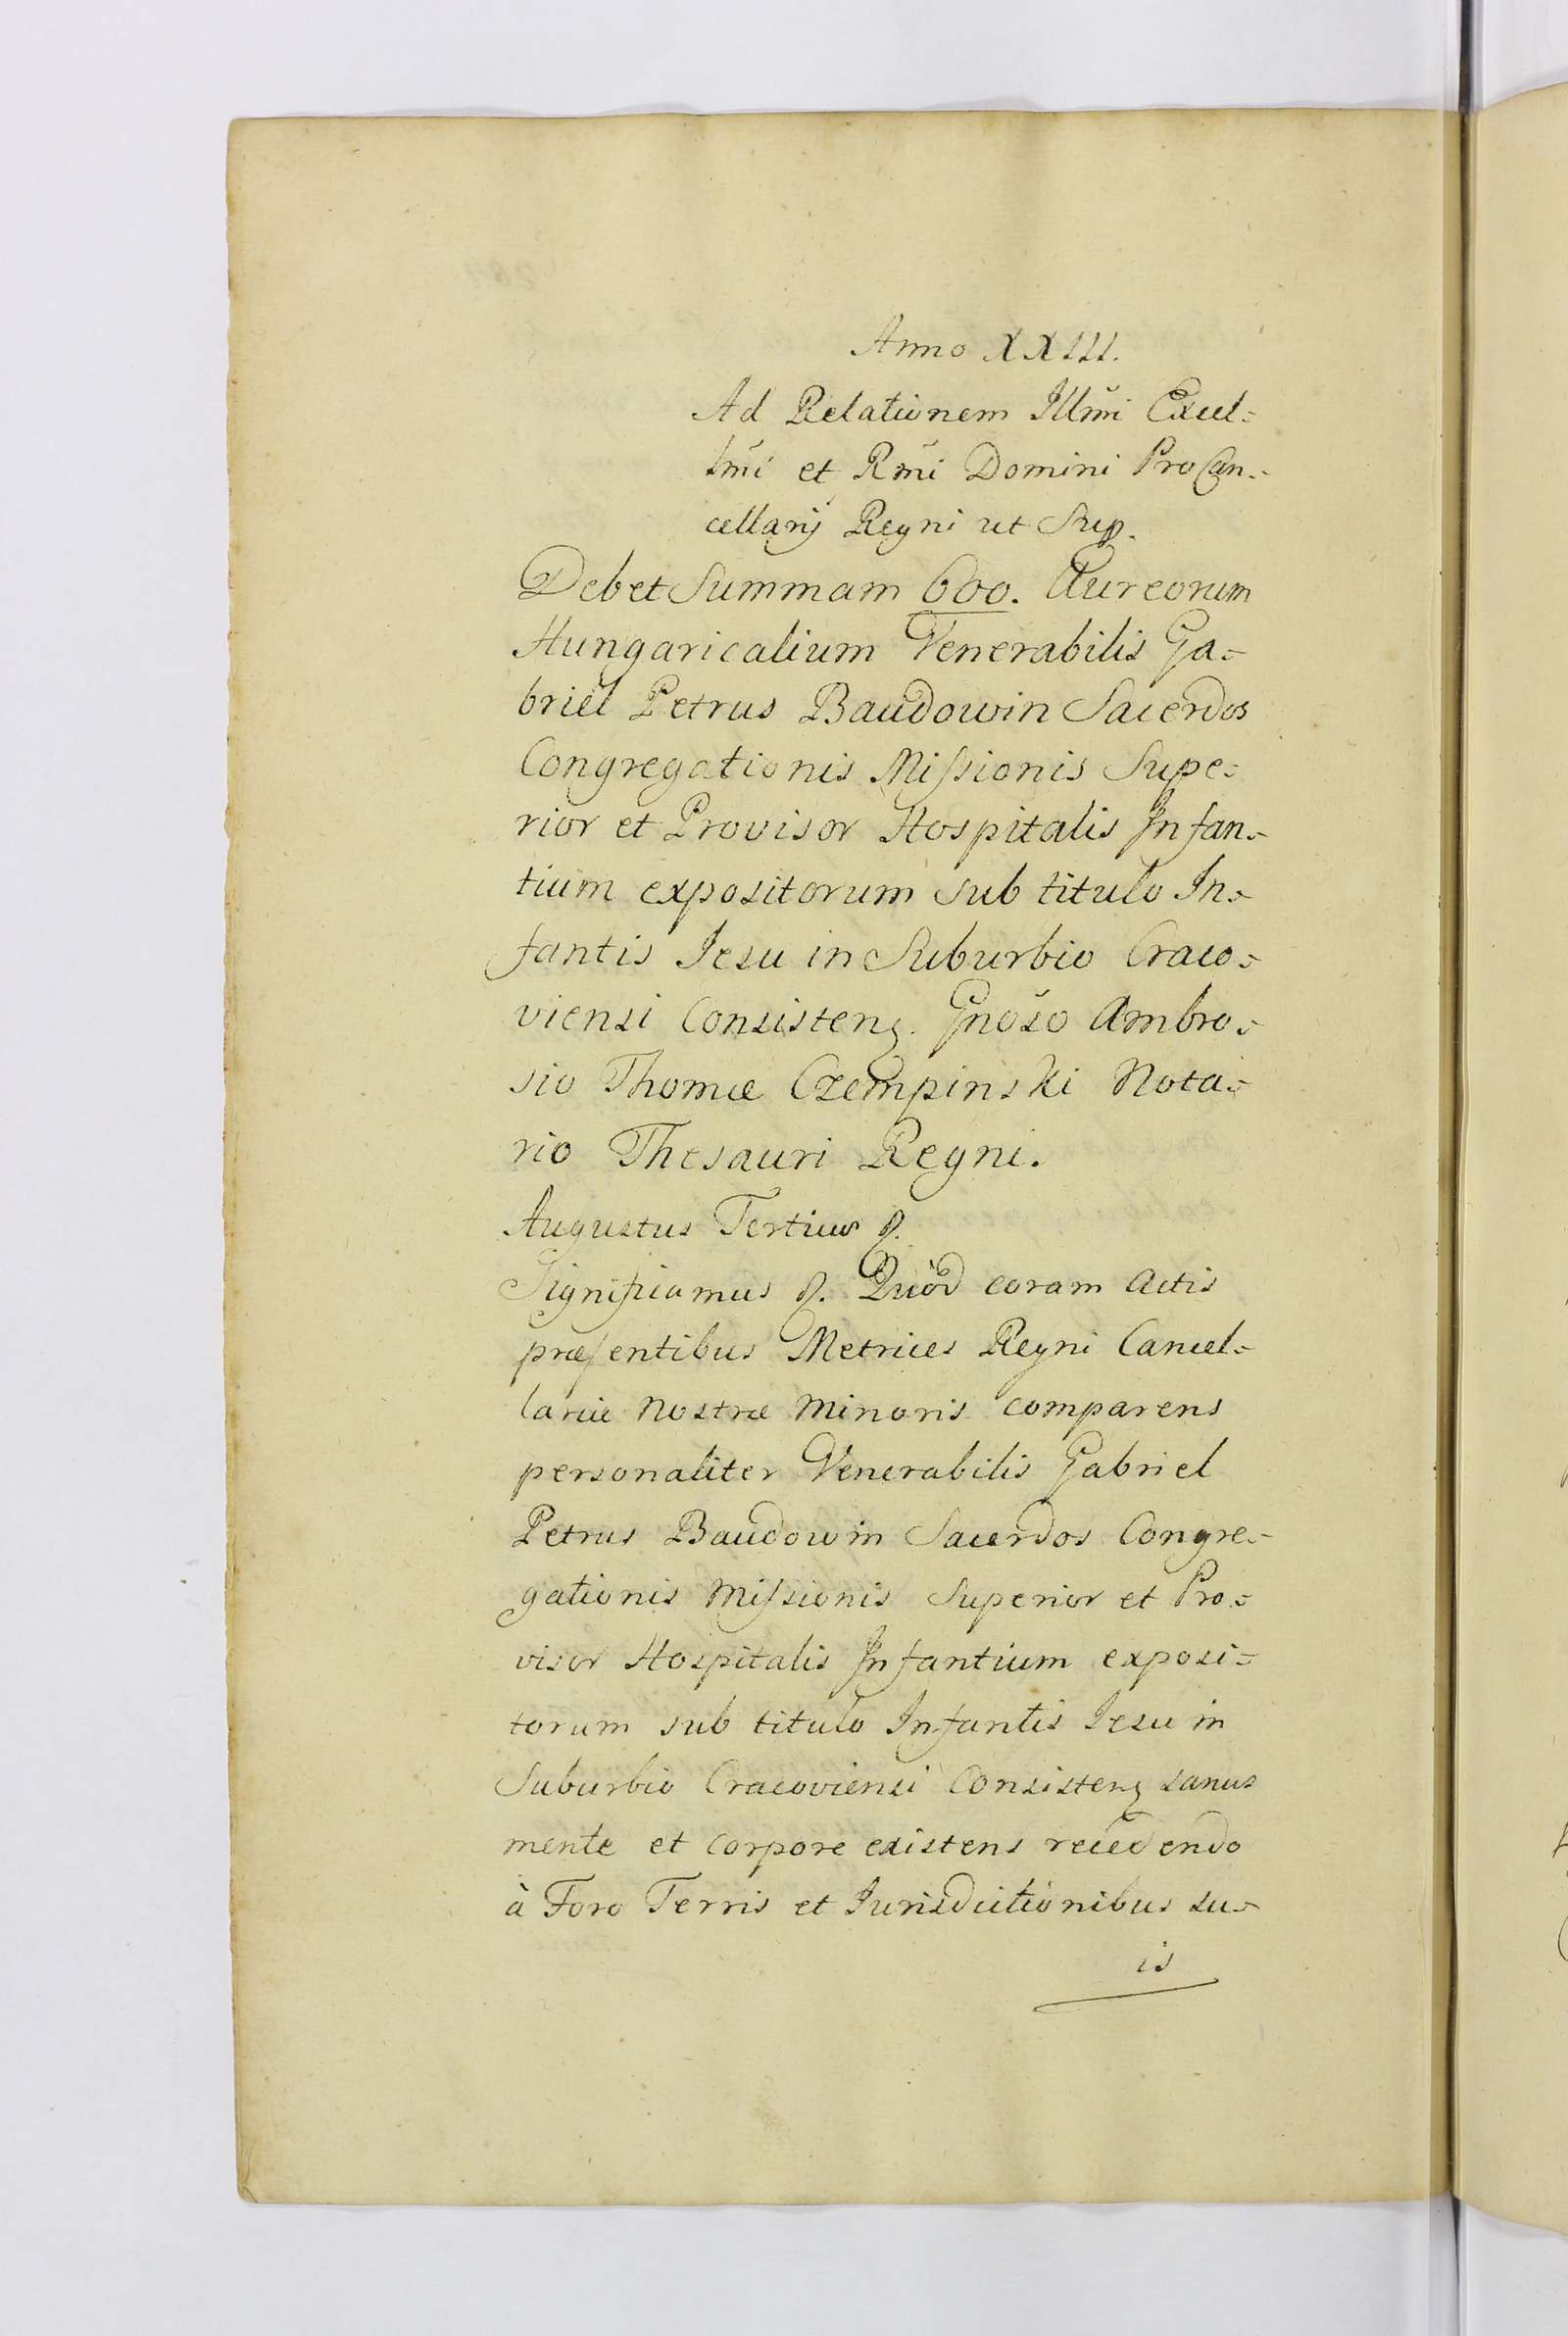 Anno XXIII.
Ad Relationem Illm̃i Excel-
lm̃i et Rm̃i Domini ProCan-
cellarij Regni ut Sup.
Debet Summam 600. Aureorum
Hungaricalium Venerabilis Ga-
briel Petrus Baudowin Sacerdos
Congregationis Missionis Supe-
rior et Provisor Hospitalis Infan-
tium expositorum sub titulo In-
fantis Jesu in Suburbio Craco-
viensi Consisten. Gnõso Ambro-
sio Thomæ Czempinski Nota-
rio Thesauri Regni.
Augustus Tertius
Significamus Quòd coram Actis
præsentibus Metrices Regni Cancel-
lariæ Nostræ Minoris comparens
personaliter Venerabilis Gabriel
Petrus Baudowin Sacerdos Congre-
gationis Missionis Superior et Pro-
visor Hospitalis Infantium exposi-
torum sub titulo Infantis Jesu in
Suburbio Cracoviensi Consisten sanus
mente et corpore existens recedendo
à Foro Terris et Jurisdictionibus su-
is